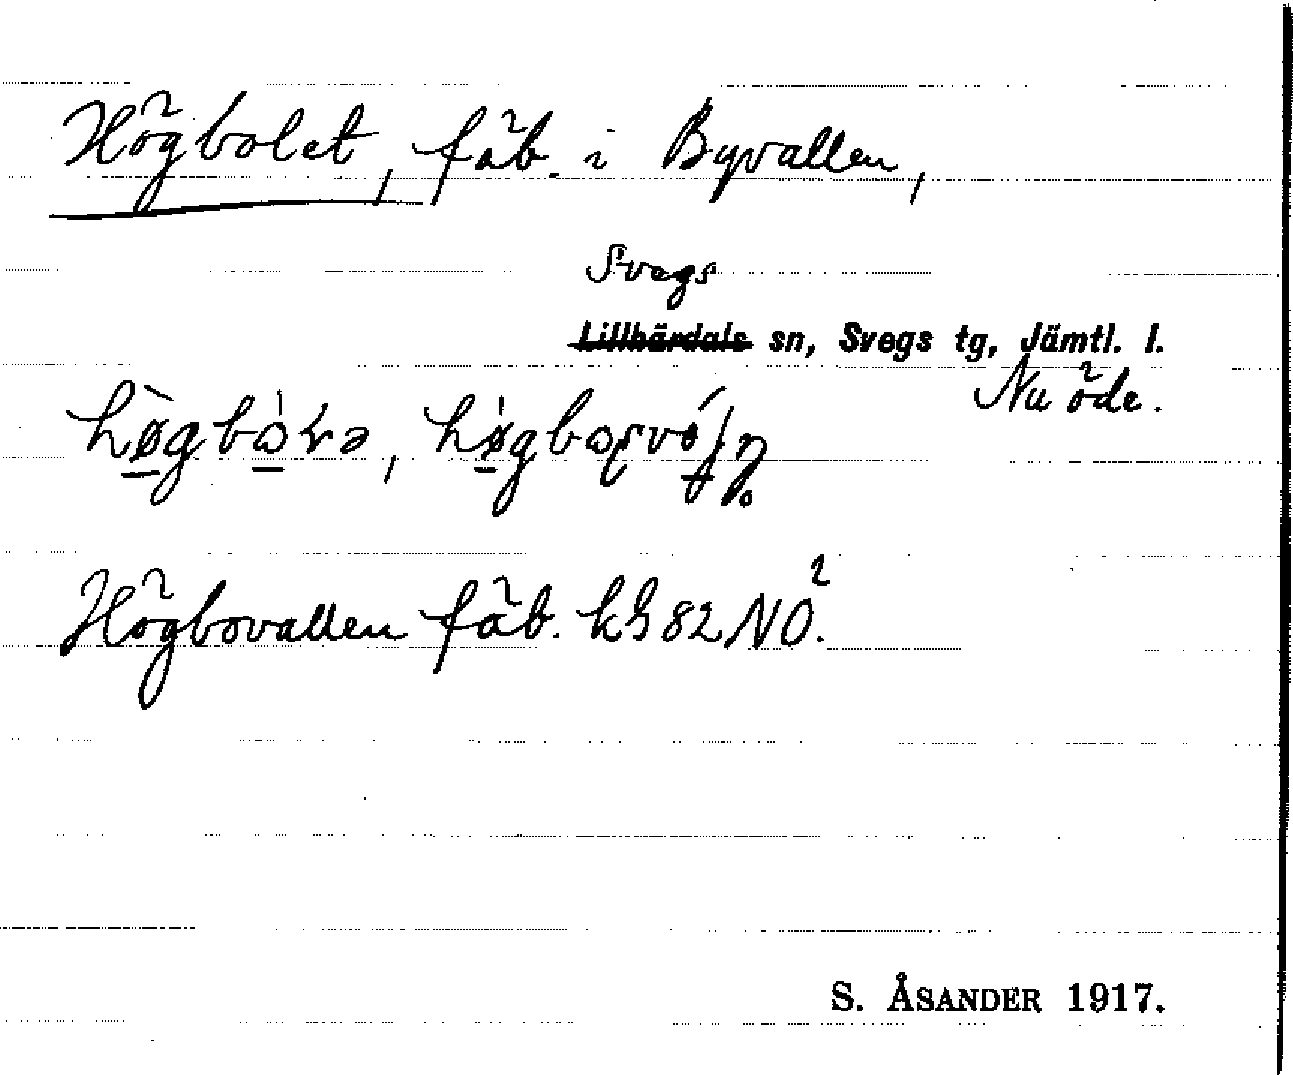 Högbolet, fäb. i Byvallen,
Svegs
Lillhärdals sn, Svegs tg, Jämtl. l.
Nu öde.
Högbovallen fäb. kG 82 NO².
S. ÅSANDER 1917.